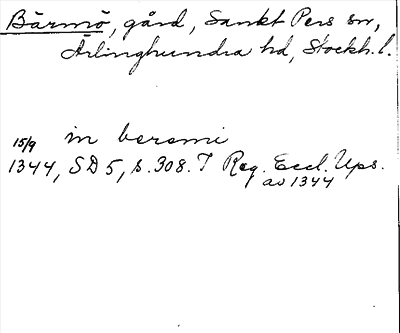 Bärmö, gård, Sankt Pers sn,
Ärlinghundra hd, Stockh. l.
15/9 in beromi
1344, SD 5, s. 308. T Reg. Eccl. Ups.
av 1344